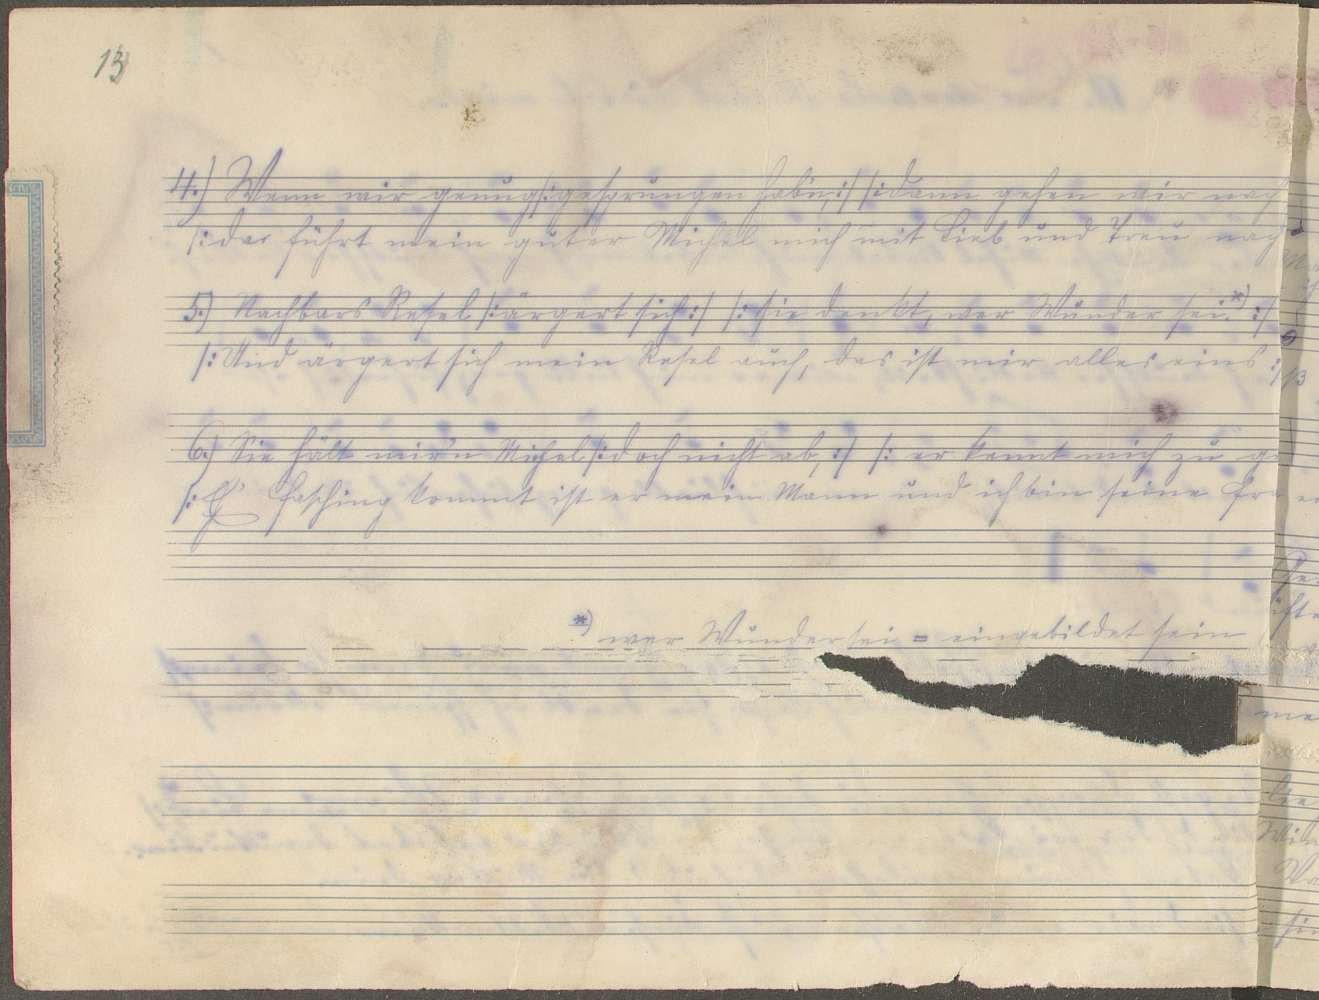 13
4.) Wenn wir genug |: gesprungen hab'n :| |: dann gehen wir nach
|: da führt mein guter Michel mich mit Lieb und Treu nach
5.) Nachbars Resel |: ärgert sich :| |: sie denkt, wer Wunder sei. *) :|
|: Und ärgert sich mein Resel auch, das ist mir alles eins :|
6.) Sie hält mir'n Michel |: doch nicht ab, :| |: er kennt mich zu
|: Eh' Fasching kommt ist er mein Mann und ich bin seine Fra
*) wer Wunder sei = eingebildet sein